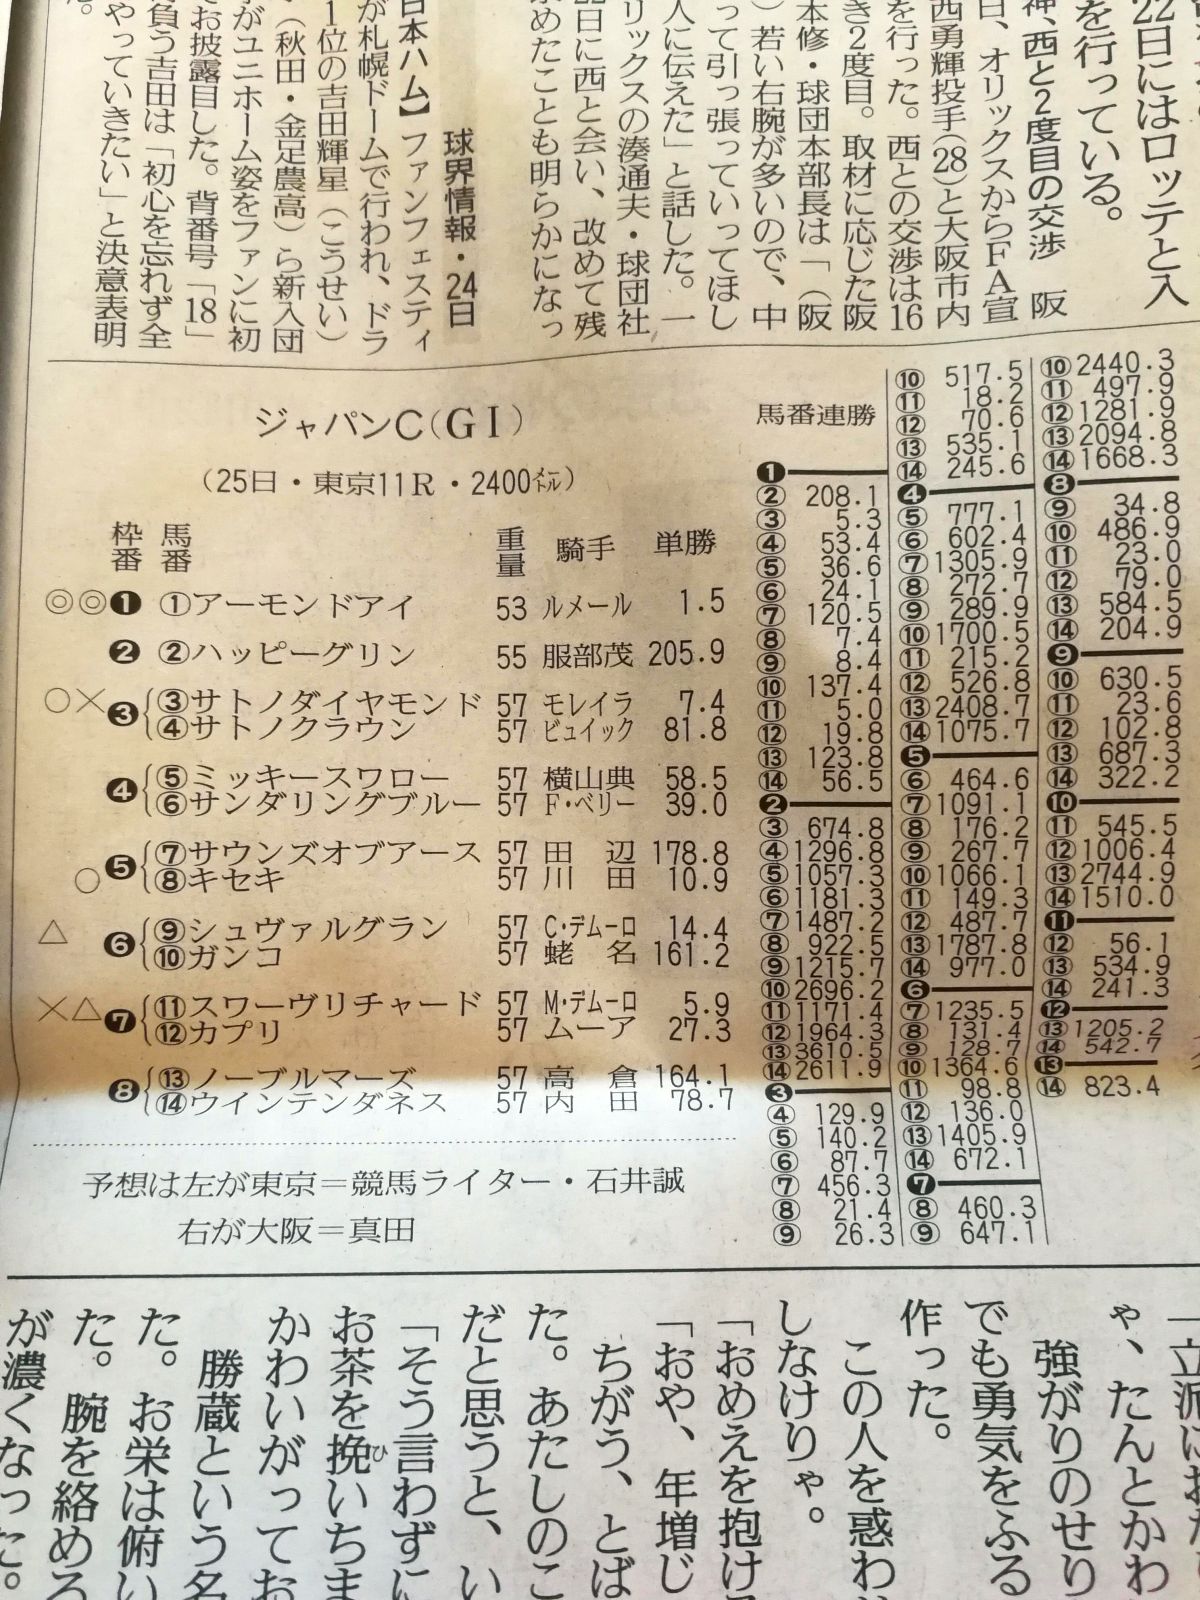 22日にはロッテと入
を行っている。
神、西と2度目の交渉 阪
日、オリックスからFA宣
西勇輝投手(28)と大阪市内
を行った。西との交渉は16
き2度目。取材に応じた阪
本修・球団本部長は「(阪
)若い右腕が多いので、中
って引っ張っていってほし
人に伝えた」と話した。一
リックスの湊通夫・球団社
22日に西と会い、改めて残
求めたことも明らかになっ
球界情報・24日
日本ハム】ファンフェスティ
が札幌ドームで行われ、ドラ
1位の吉田輝星(こうせい)
(秋田・金足農高)ら新入団
がユニホーム姿をファンに初
お披露目した。背番号「18」
負う吉田は「初心を忘れず全
やっていきたい」と決意表明
ジャパンC(GⅠ)
(25日・東京11R・2400メートル)
枠番 馬番 重量 騎手 単勝
◎◎❶ ①アーモンドアイ 53 ルメール 1.5
❷ ②ハッピーグリン 55 服部茂 205.9
○×❸ ③サトノダイヤモンド 57 モレイラ 7.4
④サトノクラウン 57 ビュイック 81.8
❹ ⑤ミッキースワロー 57 横山典 58.5
⑥サンダリングブルー 57 F・ベリー 39.0
❺ ⑦サウンズオブアース 57 田辺 178.8
○ ⑧キセキ 57 川田 10.9
△ ❻ ⑨シュヴァルグラン 57 C・デムーロ 14.4
⑩ガンコ 57 蛯名 161.2
×△❼ ⑪スワーヴリチャード 57 M・デムーロ 5.9
⑫カプリ 57 ムーア 27.3
❽ ⑬ノーブルマーズ 57 高倉 164.1
⑭ウインテンダネス 57 内田 78.7
予想は左が東京=競馬ライター・石井誠
右が大阪=真田
馬番連勝
❶
② 208.1
③ 5.3
④ 53.4
⑤ 36.6
⑥ 24.1
⑦ 120.5
⑧ 7.4
⑨ 8.4
⑩ 137.4
⑪ 5.0
⑫ 19.8
⑬ 123.8
⑭ 56.5
❷
③ 674.8
④ 1296.8
⑤ 1057.3
⑥ 1181.3
⑦ 1487.2
⑧ 922.5
⑨ 1215.7
⑩ 2696.2
⑪ 1171.4
⑫ 1964.3
⑬ 3610.5
⑭ 2611.9
❸
④ 129.9
⑤ 140.2
⑥ 87.7
⑦ 456.3
⑧ 21.4
⑨ 26.3
⑩ 517.5
⑪ 18.2
⑫ 70.6
⑬ 535.1
⑭ 245.6
❹
⑤ 777.1
⑥ 602.4
⑦ 1305.9
⑧ 272.7
⑨ 289.9
⑩ 1700.5
⑪ 215.2
⑫ 526.8
⑬ 2408.7
⑭ 1075.7
❺
⑥ 464.6
⑦ 1091.1
⑧ 176.2
⑨ 267.7
⑩ 1066.1
⑪ 149.3
⑫ 487.7
⑬ 1787.8
⑭ 977.0
❻
⑦ 1235.5
⑧ 131.4
⑨ 128.7
⑩ 1364.6
⑪ 98.8
⑫ 136.0
⑬ 1405.9
⑭ 672.1
❼
⑧ 460.3
⑨ 647.1
⑩ 2440.3
⑪ 497.9
⑫ 1281.9
⑬ 2094.8
⑭ 1668.3
❽
⑨ 34.8
⑩ 486.9
⑪ 23.0
⑫ 79.0
⑬ 584.5
⑭ 204.9
❾
⑩ 630.5
⑪ 23.6
⑫ 102.8
⑬ 687.3
⑭ 322.2
❿
⑪ 545.5
⑫ 1006.4
⑬ 2744.9
⑭ 1510.0
⓫
⑫ 56.1
⑬ 534.9
⑭ 241.3
⓬
⑬ 1205.2
⑭ 542.7
⓭
⑭ 823.4
ゃ、たんとかわ
強がりのせり
でも勇気をふる
作った。
この人を惑わ
しなけりゃ。
「おめえを抱け
「おや、年増じ
ちがう、とば
た。あたしのこ
だと思うと、い
「そう言わずに
お茶を挽いちま
かわいがってお
勝蔵という名
た。お栄は俯い
た。腕を絡めろ
が濃くなった。